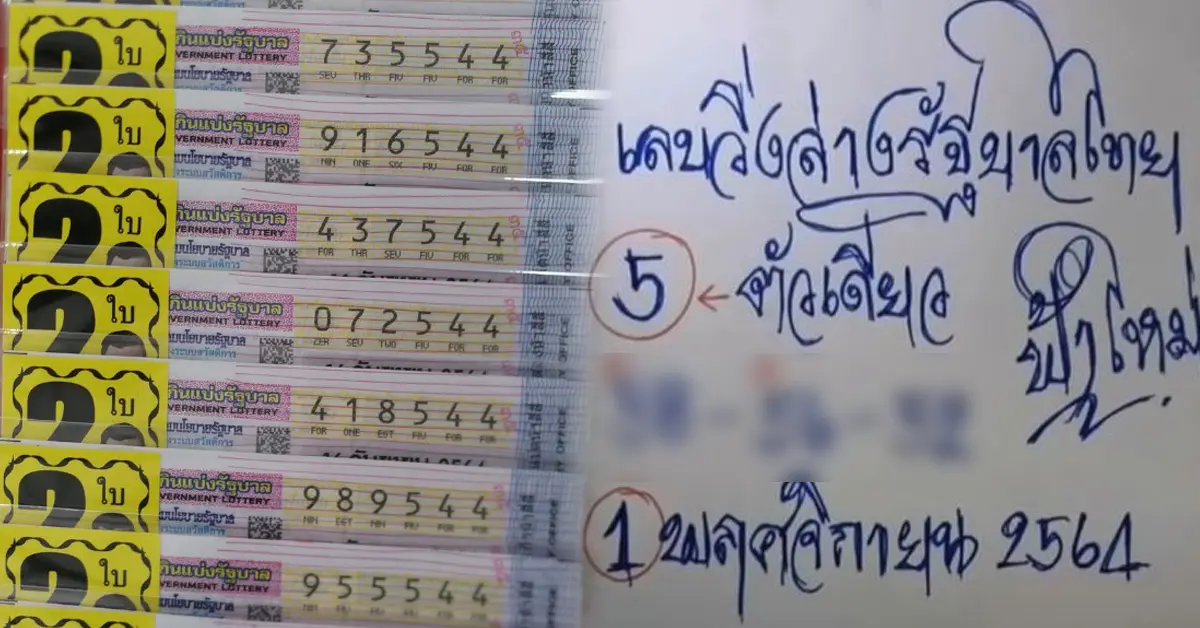 2 ใบ
กินแบ่งรัฐบาล
VERNMENT LOTTERY
7 3 5 5 4 4
SEV THR FIV FIV FOR FOR
2 ใบ
กินแบ่งรัฐบาล
VERNMENT LOTTERY
9 1 6 5 4 4
NIN ONE SIX FIV FOR FOR
OFFICE
2 ใบ
กินแบ่งรัฐบาล
VERNMENT LOTTERY
4 3 7 5 4 4
FOR THR SEV FIV FOR FOR
OFFICE
2 ใบ
กินแบ่งรัฐบาล
VERNMENT LOTTERY
0 7 2 5 4 4
ZER SEV TWO FIV FOR FOR
OFFICE
2 ใบ
กินแบ่งรัฐบาล
VERNMENT LOTTERY
4 1 8 5 4 4
FOR ONE EGT FIV FOR FOR
OFFICE
2 ใบ
กินแบ่งรัฐบาล
VERNMENT LOTTERY
9 8 9 5 4 4
NIN EGT NIN FIV FOR FOR
OFFICE
2 ใบ
กินแบ่งรัฐบาล
VERNMENT LOTTERY
9 5 5 5 4 4
NIN FIV FIV FIV FOR FOR
OFFICE
เลขวิ่งล่างรัฐบาลไทย
5 ← ตัวเดียว
ฟ้าใหม่
1 พฤศจิกายน 2564